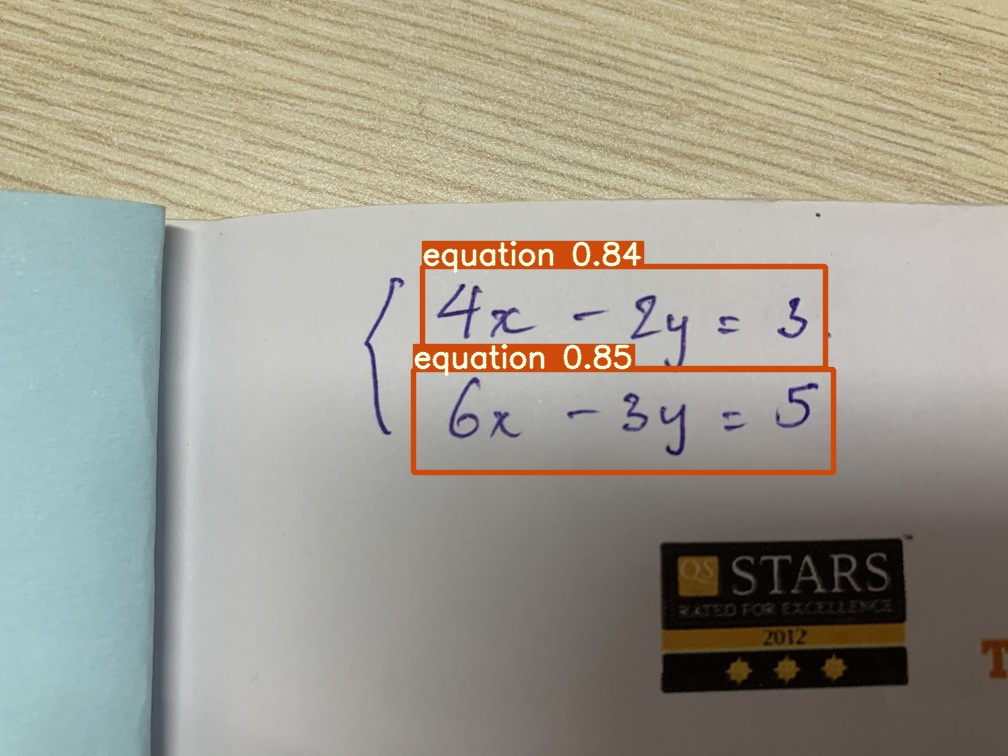 equation 0.84
4x - 2y = 3.
equation 0.85
6x - 3y = 5
QS STARS™
RATED FOR EXCELLENCE
2012
T